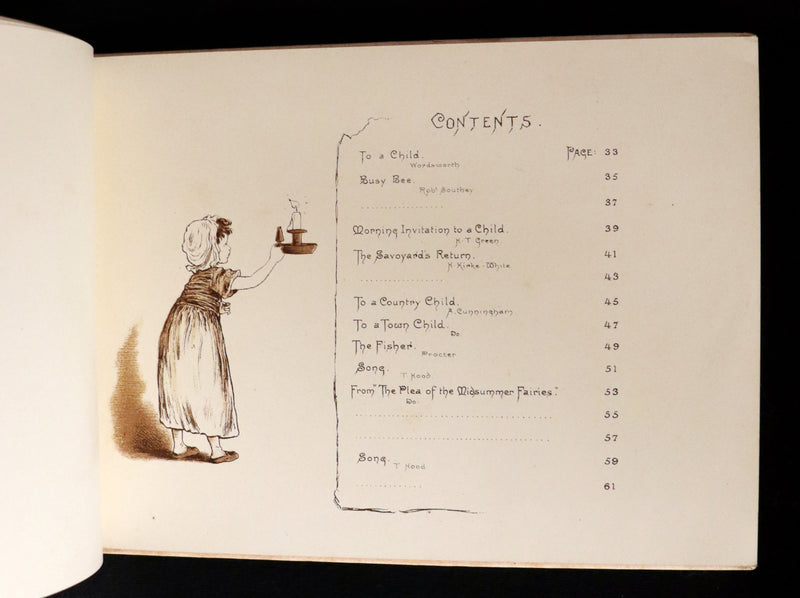 CONTENTS.
To a Child. PAGE: 33
Wordsworth
Busy Bee. 35
Robt Southey
. . . . . . . . . . . . . . . . 37
Morning Invitation to a Child. 39
K. T Green
The Savoyard's Return. 41
K. Kirke-White
. . . . . . . . . . . . . . . . 43
To a Country Child. 45
A. Cunningham
To a Town Child. 47
Do.
The Fisher. 49
Procter
Song. 51
T. Hood
From "The Plea of the Midsummer Fairies." 53
Do:
. . . . . . . . . . . . . . . . 55
. . . . . . . . . . . . . . . . 57
Song. 59
T Hood
. . . . . . . . . . . . 61